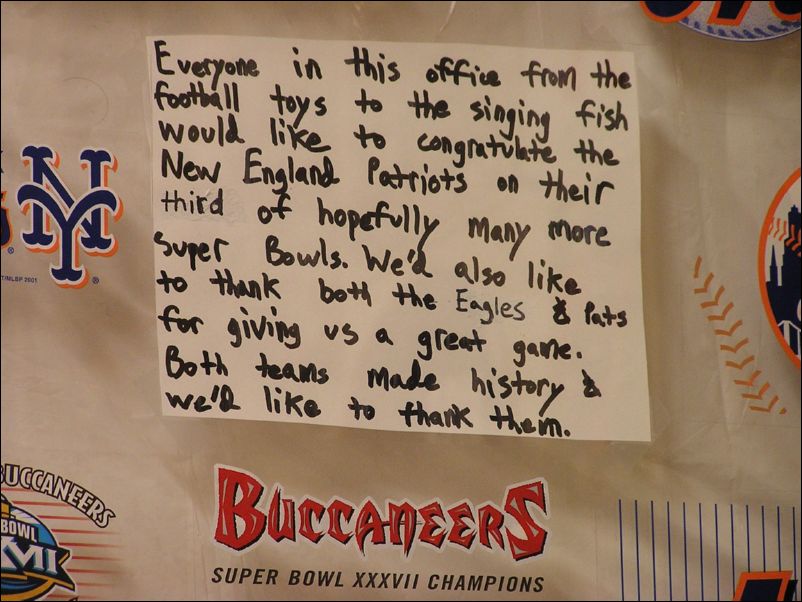 Everyone in this office from the
football toys to the singing fish
would like to congratulate the
New England Patriots on their
third of hopefully many more
Super Bowls. We'd also like
to thank both the Eagles & Pats
for giving us a great game.
Both teams made history &
we'd like to thank them.
NY
T/MLBP 2001
BUCCANEERS
BOWL
BUCCANEERS
SUPER BOWL XXXVII CHAMPIONS